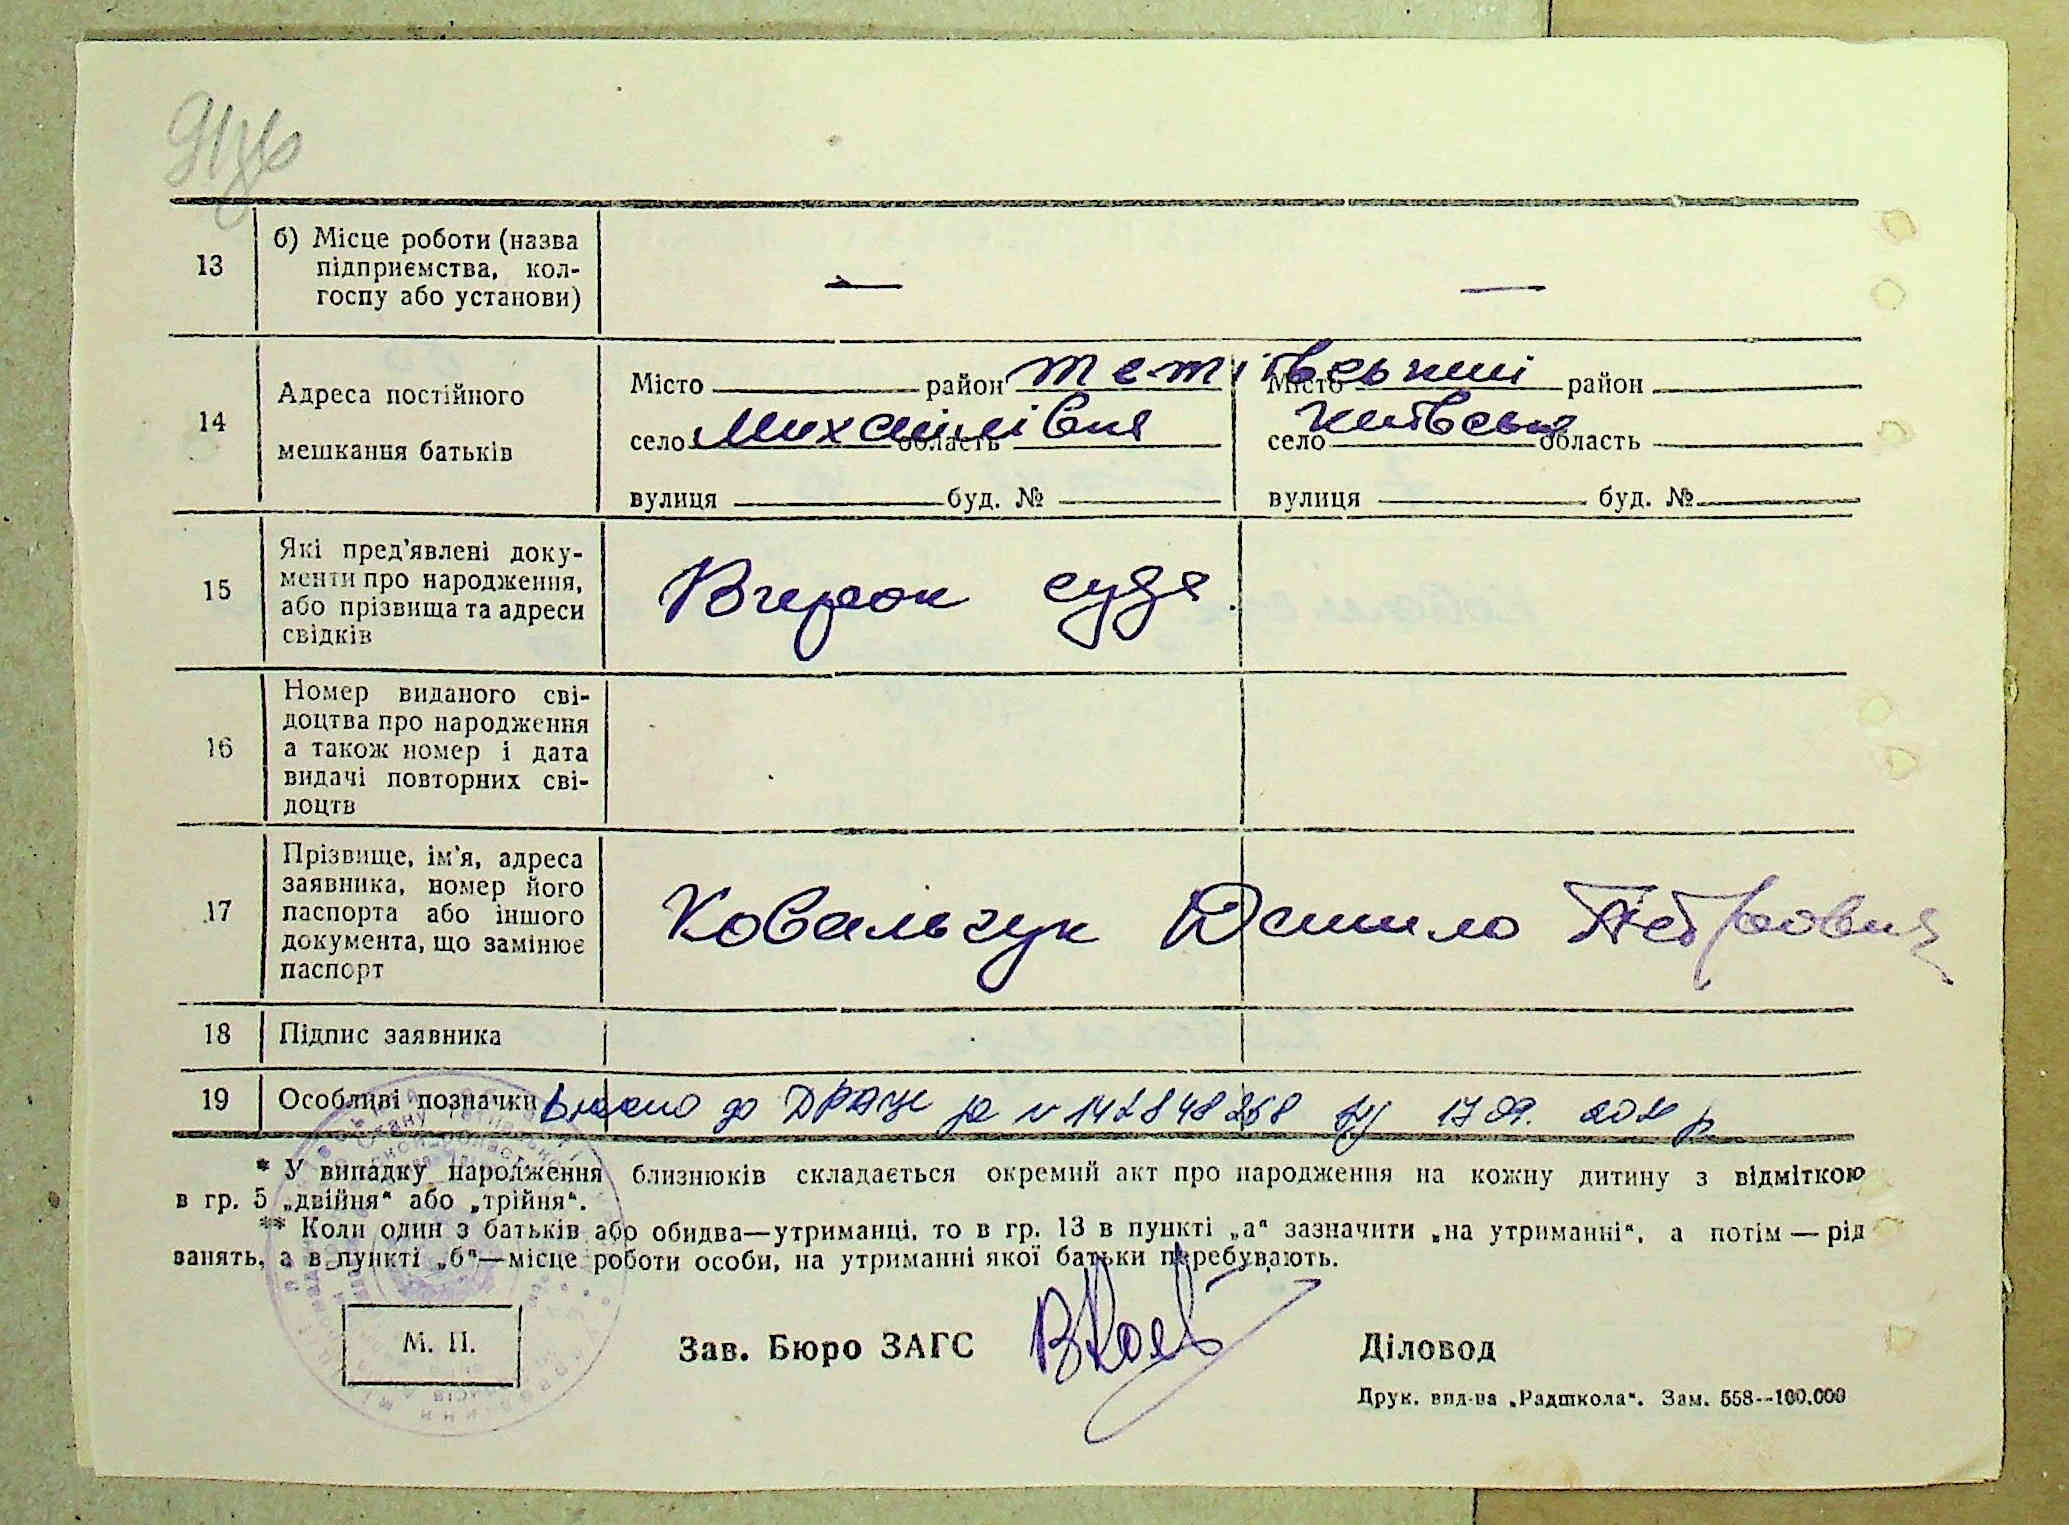 13
б) Місце роботи (назва
підприємства, кол-
госпу або установи)
— —
14
Адреса постійного
мешкання батьків
Місто район Тетіївський Місто район
село Михайлівка область село Київська область
вулиця буд. № вулиця буд. №
15
Які пред'явлені доку-
менти про народження,
або прізвища та адреси
свідків
Вчирок суда.
16
Номер виданого сві-
доцтва про народження
а також номер і дата
видачі повторних сві-
доцтв
17
Прізвище, ім'я, адреса
заявника, номер його
паспорта або іншого
документа, що замінює
паспорт
Ковальчук Данило Петрович
18 Підпис заявника
19 Особливі позначки Внесено до ДРАЦС за № 142848268 від 17 09. р
* У випадку народження близнюків складається окремий акт про народження на кожну дитину з відміткою
в гр. 5 „двійня“ або „трійня“.
** Коли один з батьків або обидва—утриманці, то в гр. 13 в пункті „а“ зазначити „на утриманні“, а потім — рід
занять, а в пункті „б“—місце роботи особи, на утриманні якої батьки перебувають.
М. П.
Зав. Бюро ЗАГС
Діловод
Друк. вид-ва „Радшкола“. Зам. 558--100.000